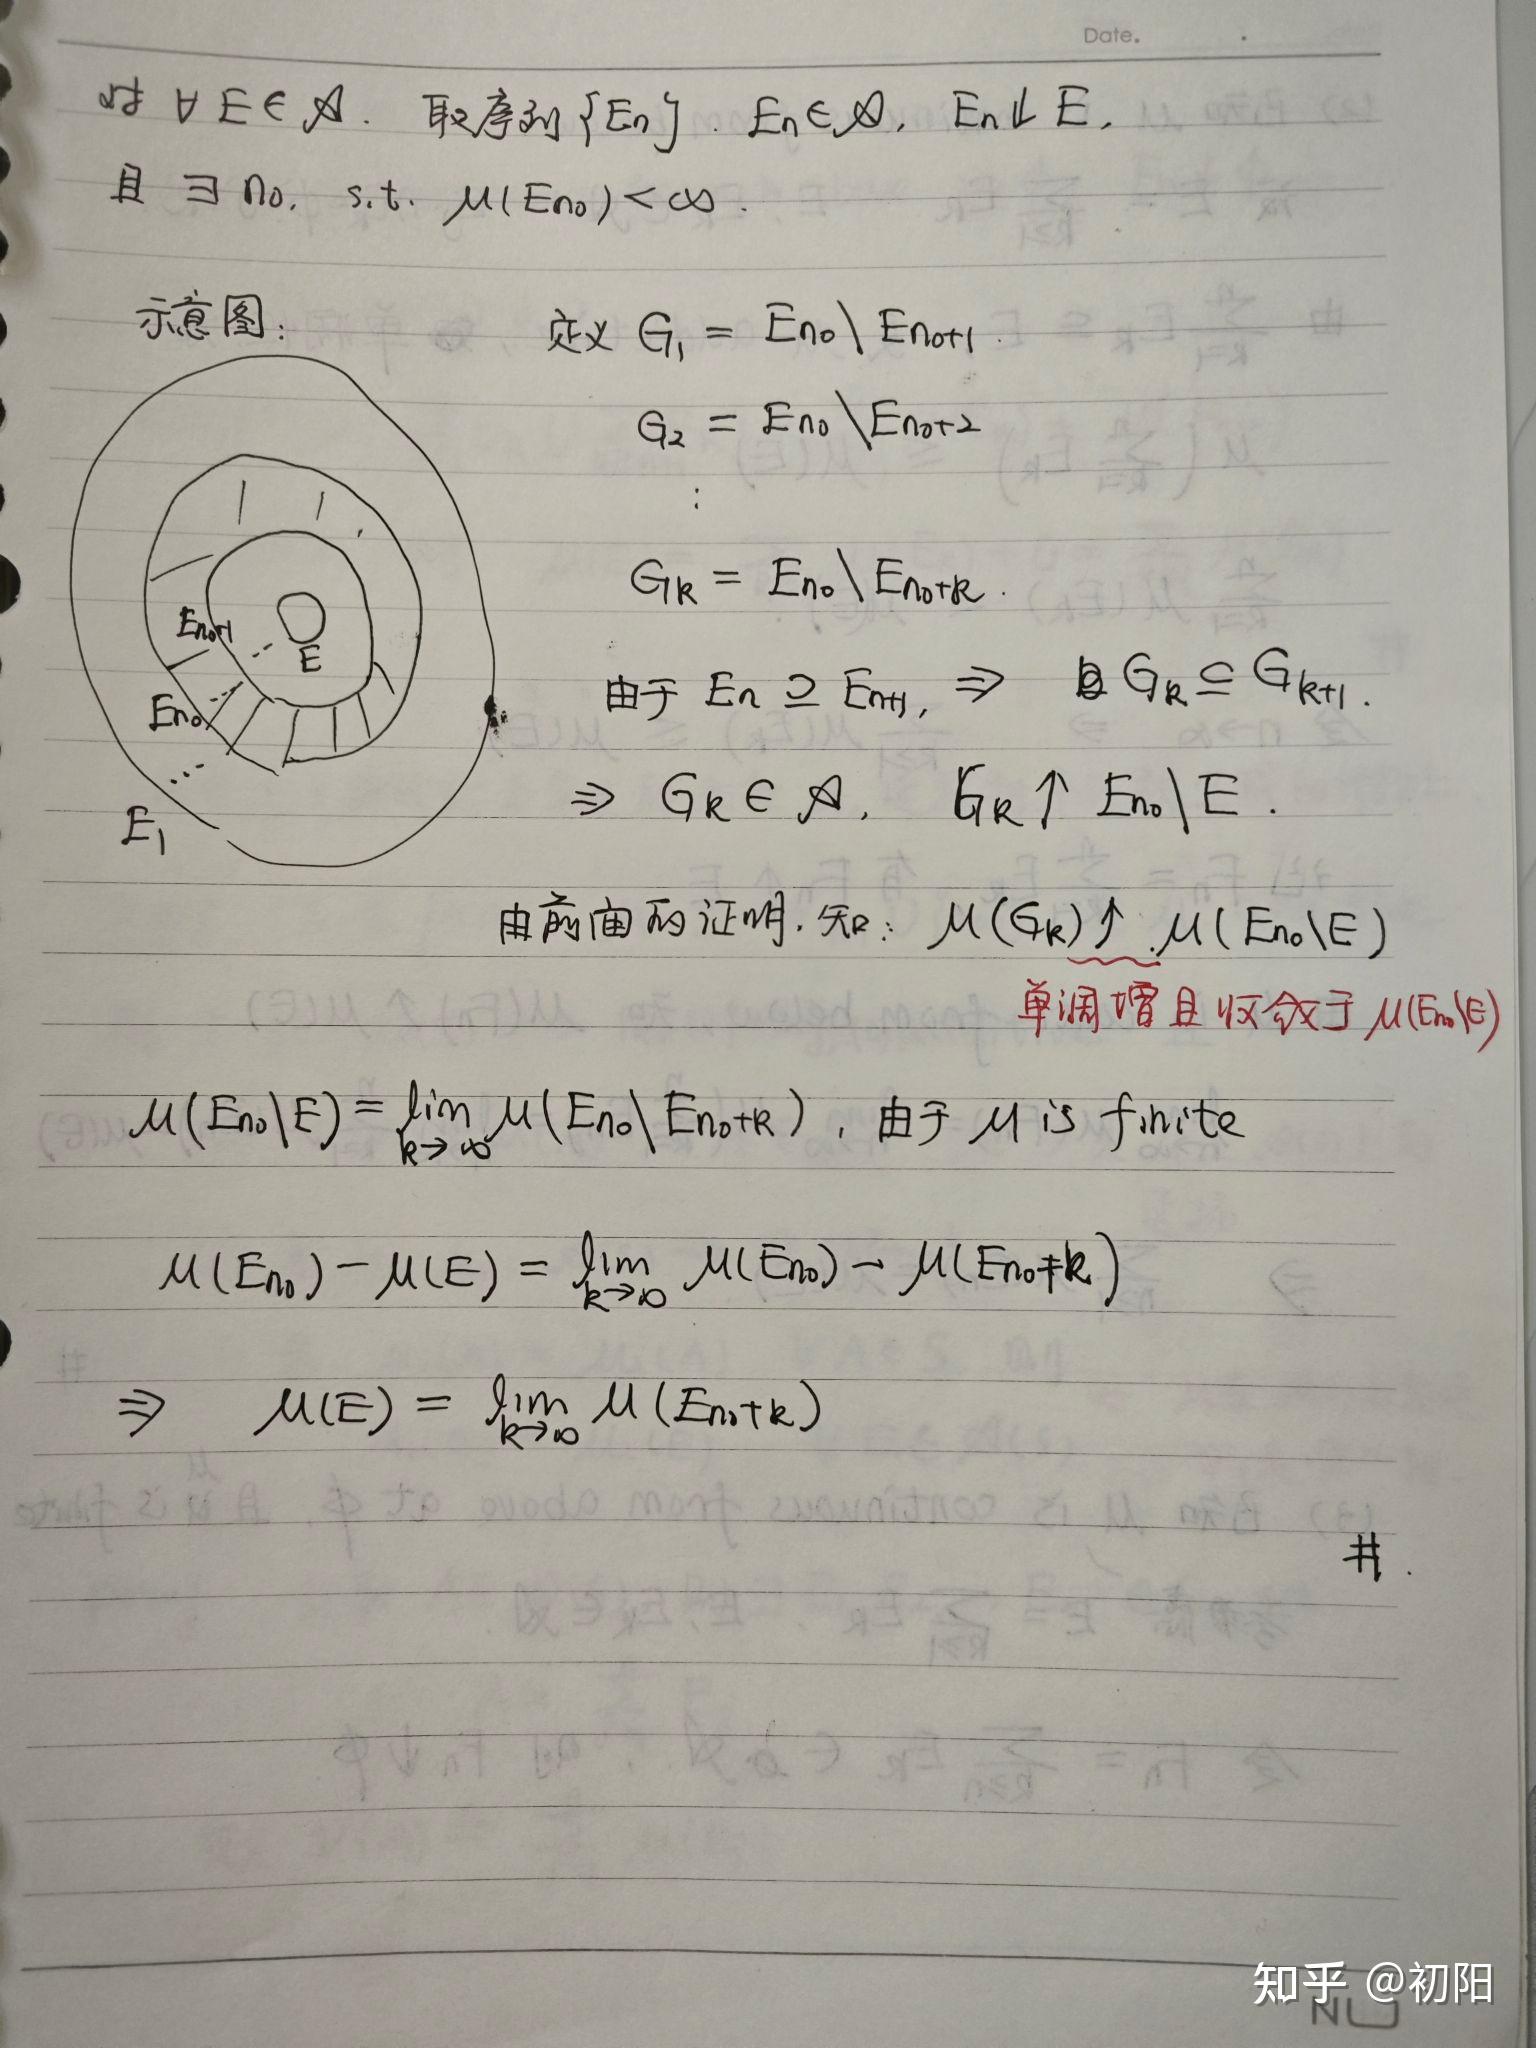 Date.
对 ∀ E ∈ 𝒜. 取序列 {Eₙ}. Eₙ ∈ 𝒜, Eₙ ↓ E,
且 ∃ n₀, s.t. μ(Eₙ₀) < ∞.
示意图:
定义 G₁ = Eₙ₀ \ Eₙ₀₊₁.
G₂ = Eₙ₀ \ Eₙ₀₊₂
⋮
Gₖ = Eₙ₀ \ Eₙ₀₊ₖ.
Eₙ₀₊₁
E
Eₙ₀
E₁
由于 Eₙ ⊇ Eₙ₊₁, ⇒ Gₖ ⊆ Gₖ₊₁.
⇒ Gₖ ∈ 𝒜, Gₖ ↑ Eₙ₀ \ E.
由前面的证明.知: μ(Gₖ) ↑ μ(Eₙ₀\E)
单调增且收敛于 μ(Eₙ₀\E)
μ(Eₙ₀\E) = lim_{k→∞} μ(Eₙ₀ \ Eₙ₀₊ₖ), 由于 μ is finite
μ(Eₙ₀) − μ(E) = lim_{k→∞} μ(Eₙ₀) − μ(Eₙ₀₊ₖ)
⇒ μ(E) = lim_{k→∞} μ(Eₙ₀₊ₖ)
#.
知乎 @初阳